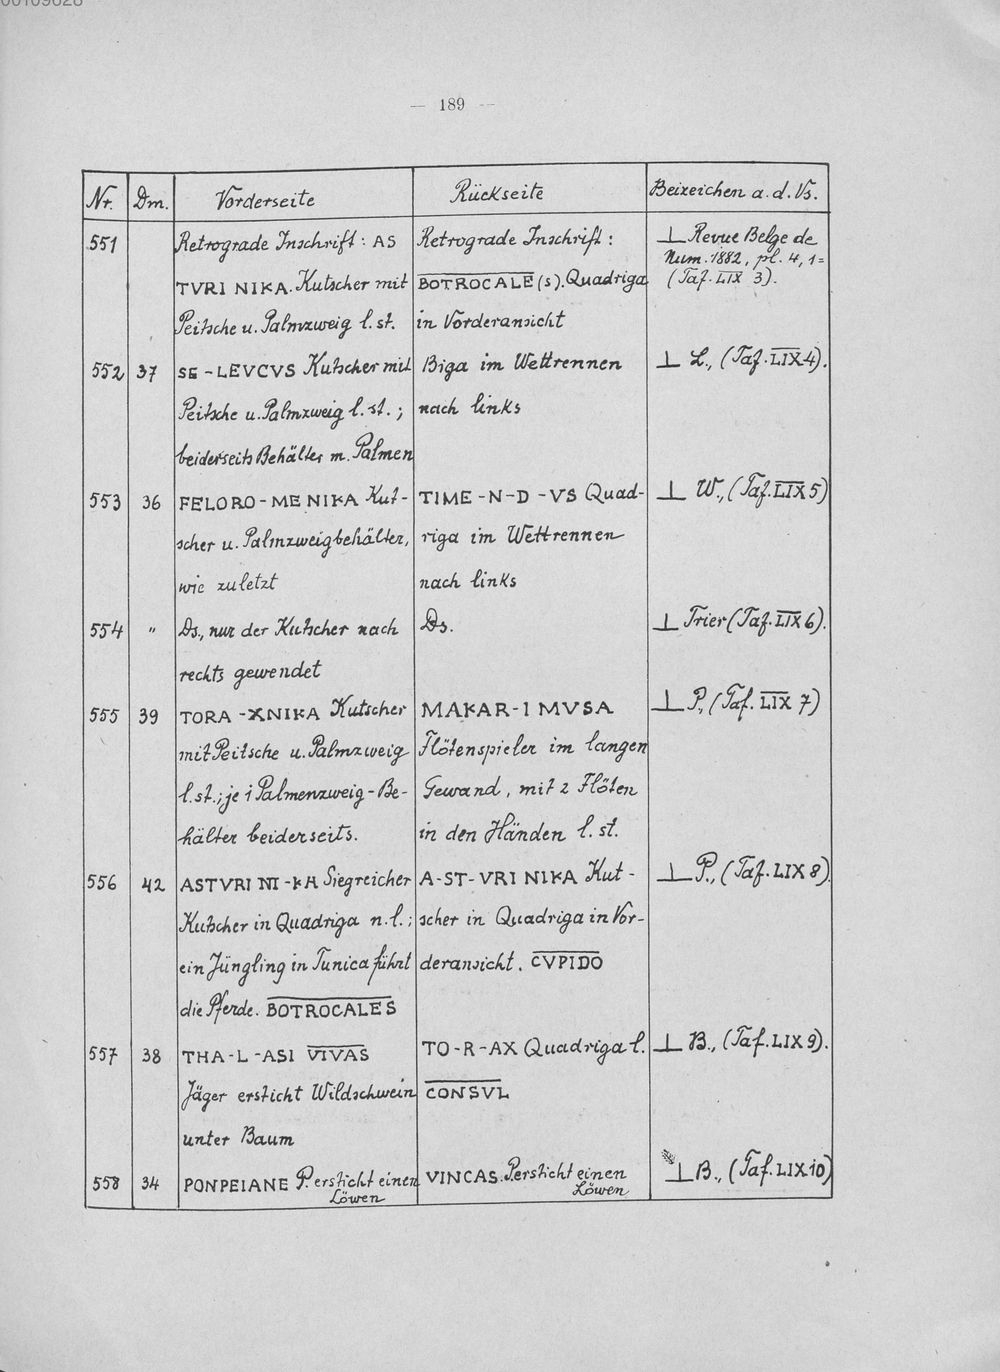 — 189 —
Nr. Dm. Vorderseite Rückseite Beizeichen a. d. Vs.
551 Retrograde Inschrift: AS Retrograde Inschrift: ⊥ Revue Belge de
Num. 1882, pl. 4, 1=
TVRI NIKA. Kutscher mit BOTROCALE (s). Quadriga (Taf. LIX 3).
Peitsche u. Palmzweig l. st. in Vorderansicht
552 37 SE-LEVCVS Kutscher mit Biga im Wettrennen ⊥ L., (Taf. LIX 4).
Peitsche u. Palmzweig l. st.; nach links
beiderseits Behälter m. Palmen
553 36 FELORO-ME NIKA Kut- TIME-N-D-VS Quad- ⊥ W., (Taf. LIX 5)
scher u. Palmzweigbehälter, riga im Wettrennen
wie zuletzt nach links
554 " Ds., nur der Kutscher nach Ds. ⊥ Trier (Taf. LIX 6).
rechts gewendet
555 39 TORA-XNIKA Kutscher MAKAR-I MVSA ⊥ P., (Taf. LIX 7)
mit Peitsche u. Palmzweig Flötenspieler im langen
l. st.; je 1 Palmenzweig-Be- Gewand, mit 2 Flöten
hälter beiderseits. in den Händen l. st.
556 42 ASTVRI NI-KA Siegreicher A-ST-VRI NIKA Kut- ⊥ P., (Taf. LIX 8).
Kutscher in Quadriga n. l.; scher in Quadriga in Vor-
ein Jüngling in Tunica führt deransicht. CVPIDO
die Pferde. BOTROCALES
557 38 THA-L-ASI VIVAS TO-R-AX Quadriga l. ⊥ B., (Taf. LIX 9).
Jäger ersticht Wildschwein CONSVL
unter Baum
558 34 PONPEIANE P. ersticht einen VINCAS. P. ersticht einen ⊥ B., (Taf. LIX 10)
Löwen Löwen